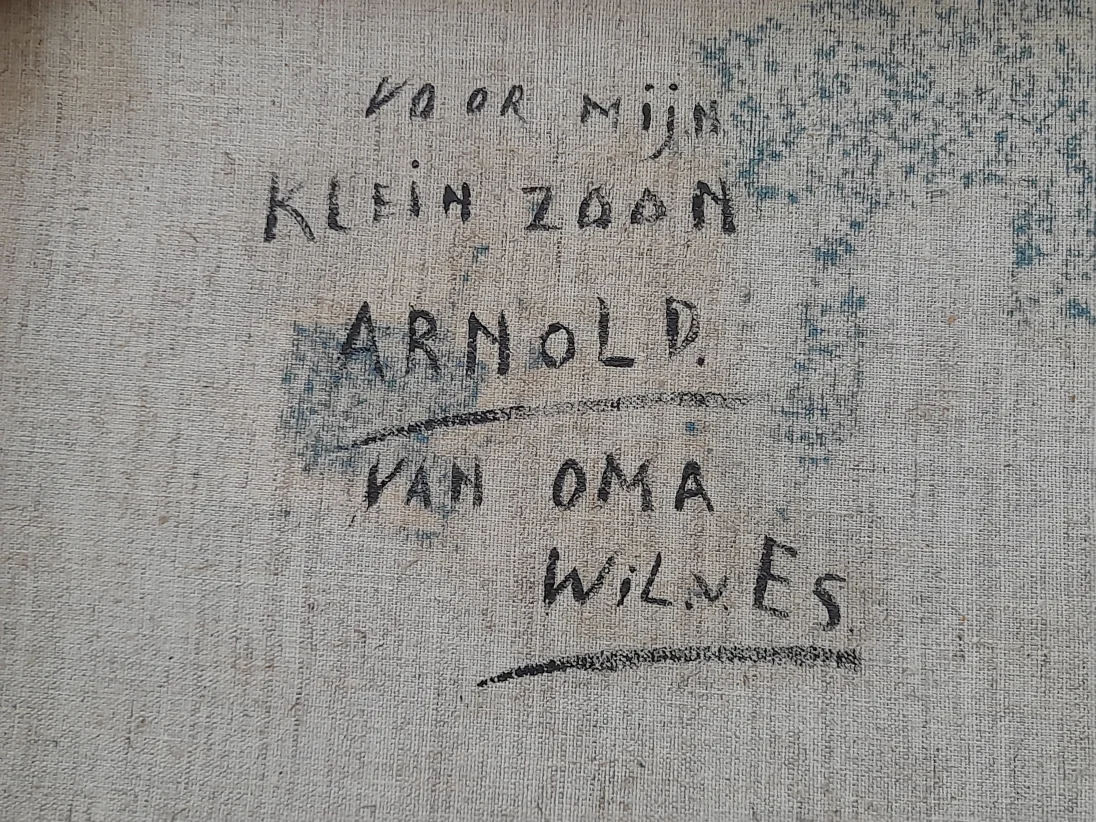 VOOR Mijn
KLEiN ZOON
ARNOLD.
VAN OMA
WiLNES.